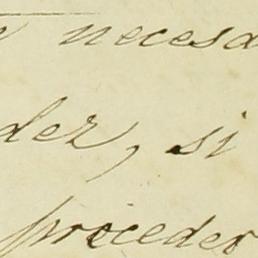 necesa
der, si
proceder